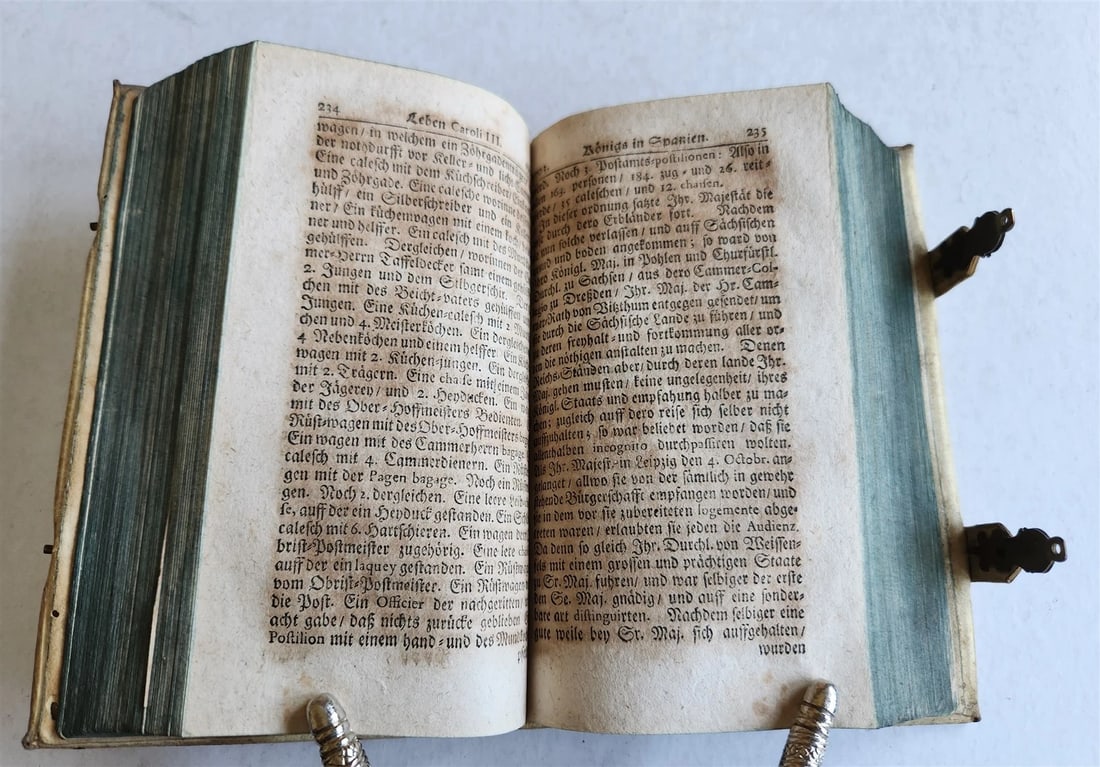 234
Leben Caroli III.
wagen / in welchem ein Zöhrgadener
der nothdurfft vor Keller- und licht-
Eine calesch mit dem Küchschreiber /
und Zöhrgade. Eine calesche worinne
hülff / ein Silberschreiber und ein
ner / Ein küchenwagen mit einem
ner und helffer. Ein calesch mit des
gehülffen. Dergleichen / worinnen der
mer-Herrn Taffeldecker samt einem
2. Jungen und dem Silberschir.
chen mit des Beicht-vaters gehülffen
Jungen. Eine Küchen-calesch mit 2.
chen und 4. Meisterköchen. Ein
4 Nebenköchen und einem helffer. Ein
wagen mit 2. Küchen-jungen. Ein
mit 2. Trägern. Eine chaise mit einem
der Jägerey / und 2. Heyducken. Ein
mit des Ober-Hoffmeisters Bedienten.
Rüst-wagen mit des Ober-Hoffmeisters
Ein wagen mit des Cammerherrn bagage.
calesch mit 4. Cammerdienern. Ein
gen mit der Pagen bagage. Noch ein
gen. Noch 2. dergleichen. Eine leere
se, auff der ein Heyduck gestanden. Ein
calesch mit 6. Hartschieren. Ein wagen dem
brist-Postmeister zugehörig. Eine lete
auff der ein laquey gestanden. Ein
vom Obrist-Postmeister. Ein Rüstwagen
die Post. Ein Officier der nachgeritten /
acht gabe / daß nichts zurücke geblieben
Postilion mit einem hand- und des
Königs in Spanien. 235
Noch 3. Postamts-postilionen: Also in
169. personen / 184. zug- und 26. reit-
/ 35 caleschen / und 12. chaisen.
In dieser ordnung satzte Ihr. Majestät die
durch dero Erbländer fort. Nachdem
nun solche verlassen / und auff Sächsischen
und boden angekommen; so ward von
Königl. Maj. in Pohlen und Churfürstl.
Durchl. zu Sachsen / aus dero Cammer-Col-
zu Dreßden / Ihr. Maj. der Hr. Cam-
Rath von Vitzthum entgegen gesendet / um
durch die Sächsische Lande zu führen / und
deren freyhalt- und fortkommung aller or-
ten die nöthigen anstalten zu machen. Denen
Reichs-Ständen aber / durch deren lande Ihr.
Maj. gehen musten / keine ungelegenheit / ihres
Königl. Staats und empfahung halber zu ma-
chen; zugleich auff dero reise sich selber nicht
auffzuhalten; so war beliebet worden / daß sie
allenthalben incognito durchpassiren wolten.
Als Ihr. Majest. in Leipzig den 4. Octobr. an-
gelanget / allwo sie von der sämtlich in gewehr
stehende Bürgerschafft empfangen worden / und
sie in dem vor sie zubereiteten logemente abge-
treten waren / erlaubten sie jeden die Audienz.
Da denn so gleich Ihr. Durchl. von Weissen-
fels mit einem grossen und prächtigen Staate
zu Sr. Maj. fuhren / und war selbiger der erste
den Se. Maj. gnädig / und auff eine sonder-
bare art distinguirten. Nachdem selbiger eine
gute weile bey Sr. Maj. sich auffgehalten /
wurden